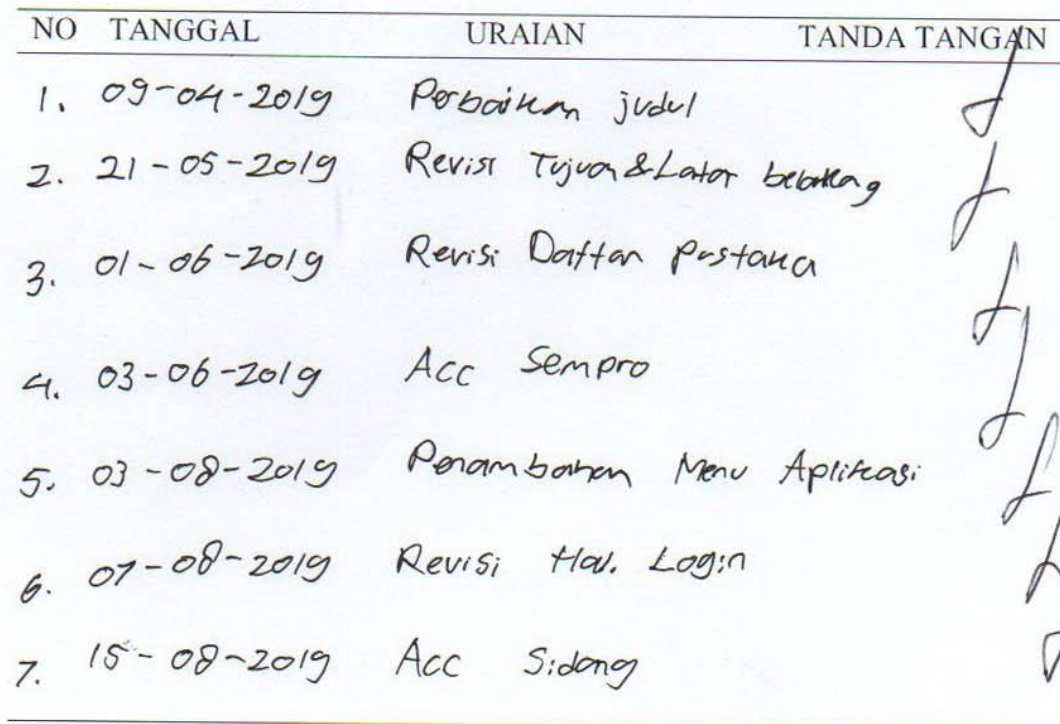 NO TANGGAL URAIAN TANDA TANGAN
1. 09-04-2019 Perbaikan judul
2. 21-05-2019 Revisi Tujuan & Latar belakang
3. 01-06-2019 Revisi Daftar Pustaka
4. 03-06-2019 Acc Sempro
5. 03-08-2019 Penambahan Menu Aplikasi
6. 07-08-2019 Revisi Hal. Login
7. 15-08-2019 Acc Sidang